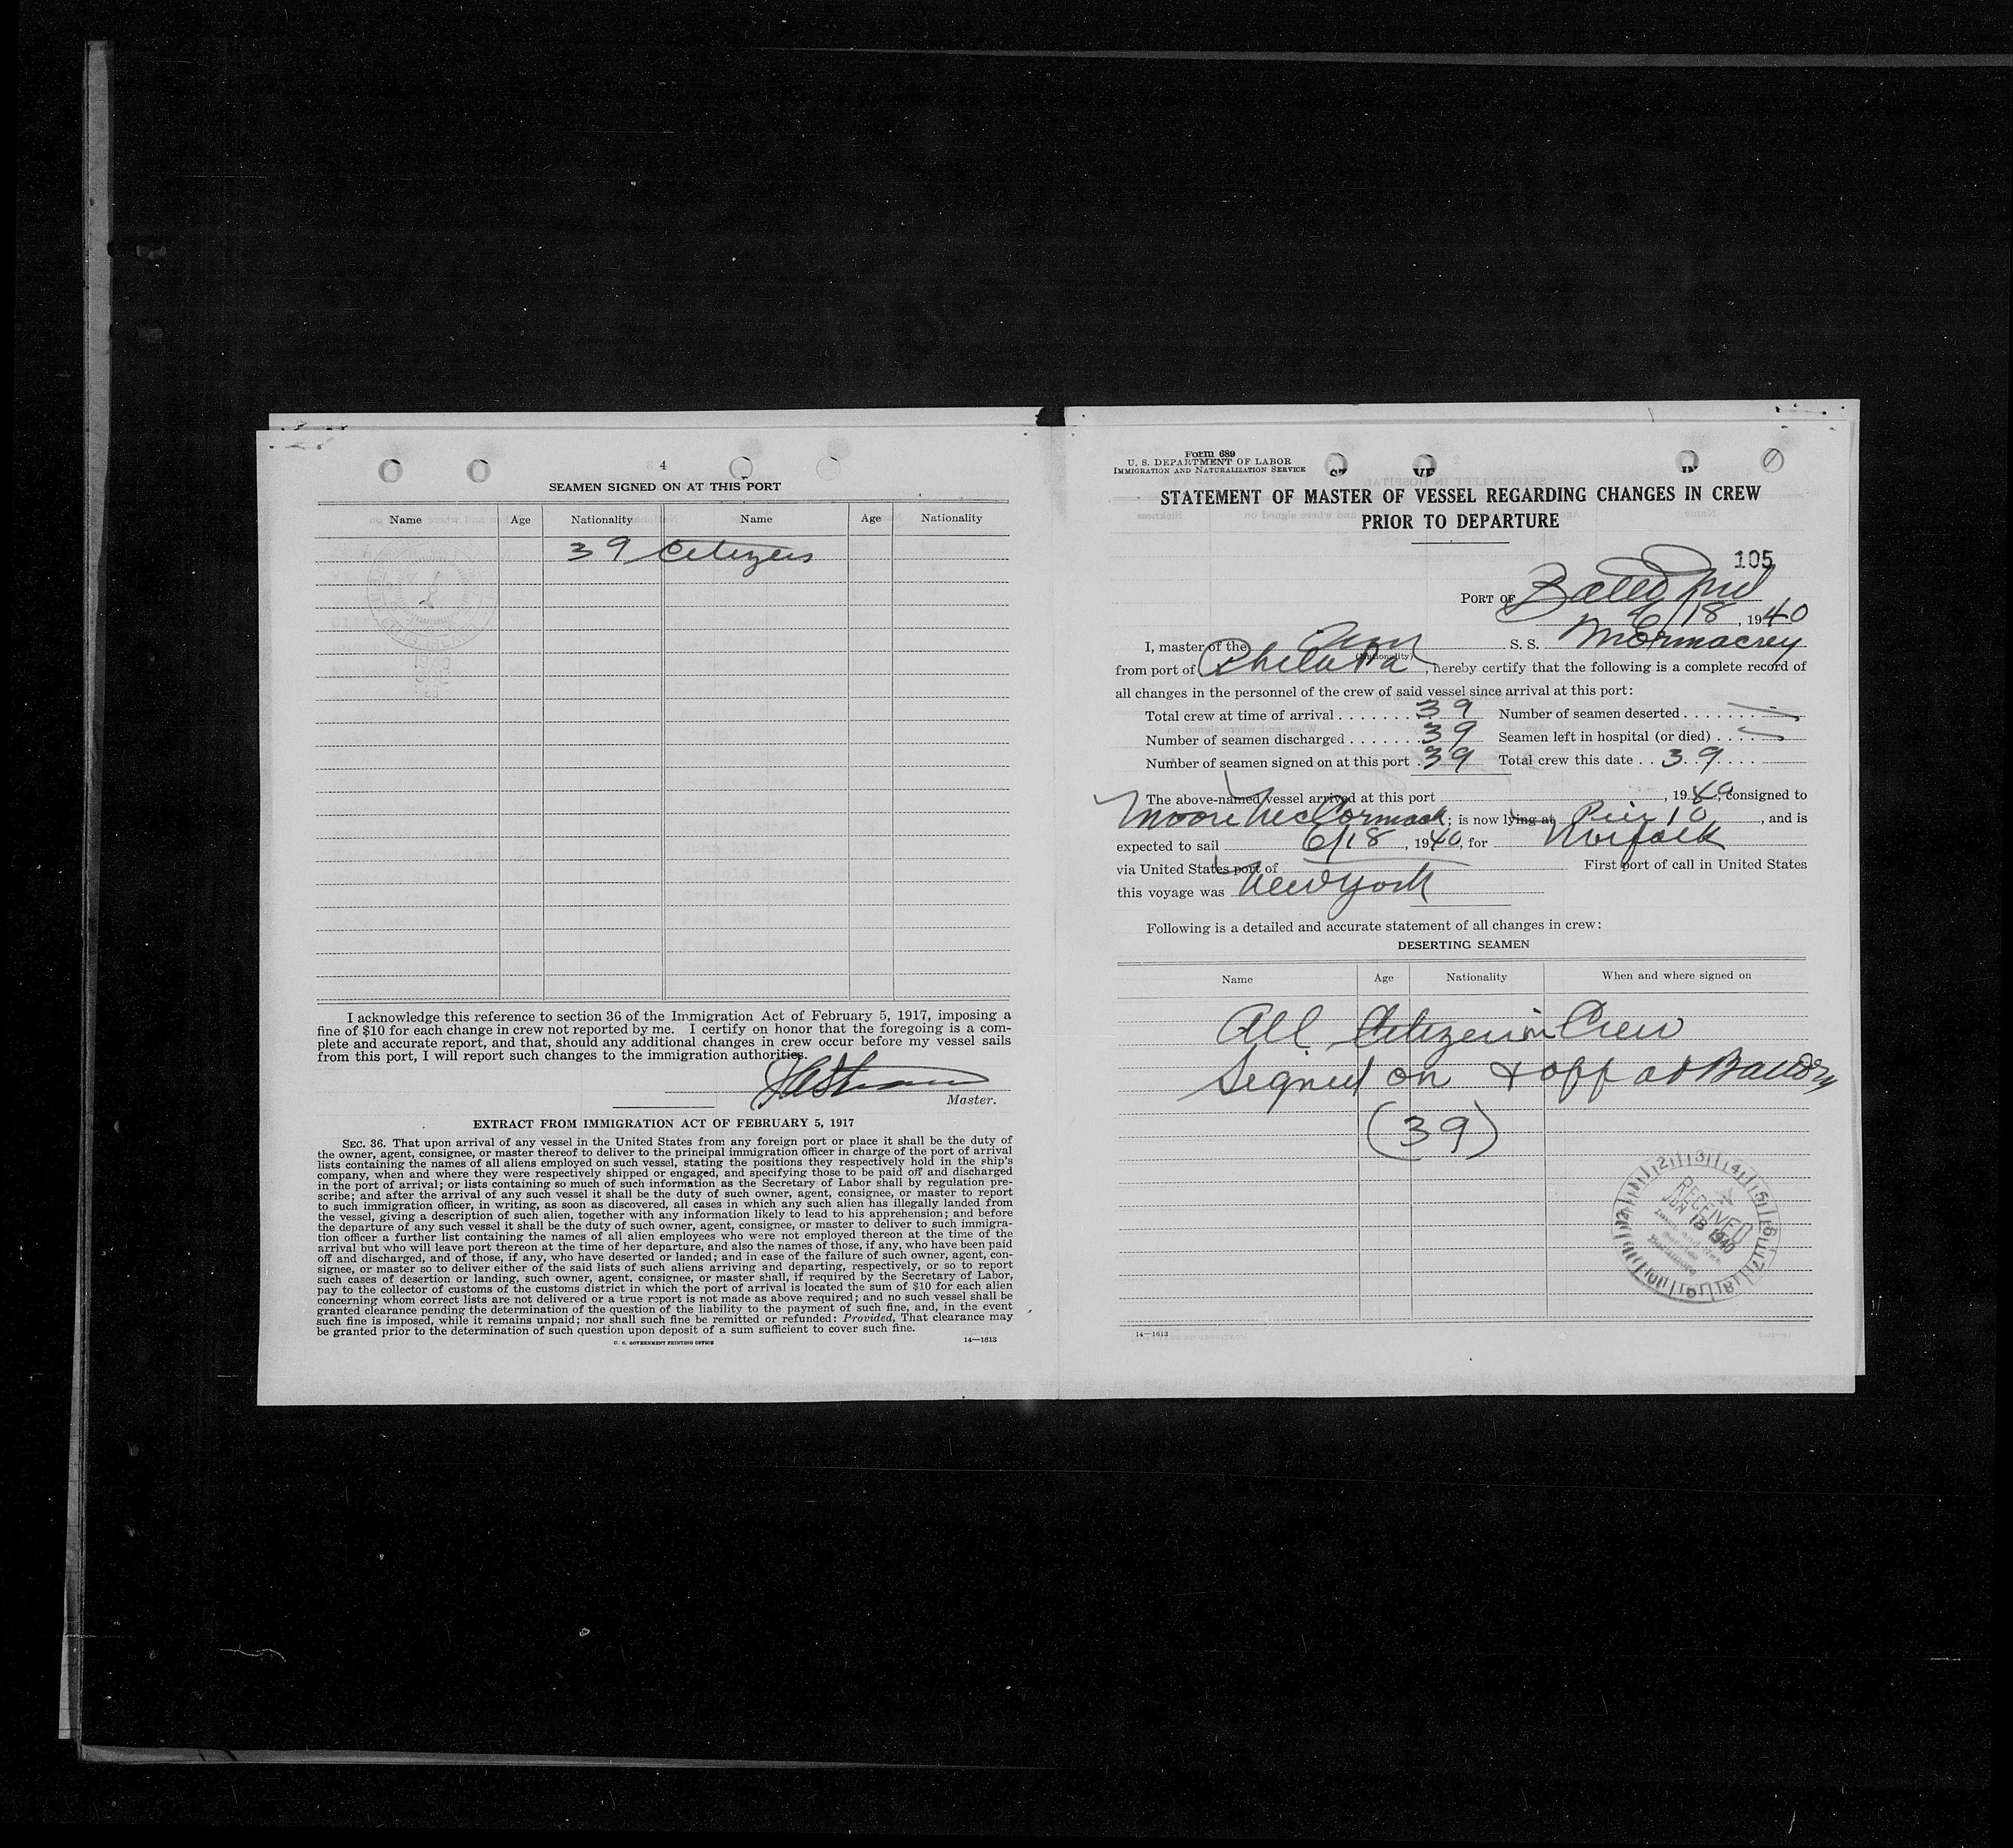 4
SEAMEN SIGNED ON AT THIS PORT
Name Age Nationality Name Age Nationality
39 Citizens
I acknowledge this reference to section 36 of the Immigration Act of February 5, 1917, imposing a
fine of $10 for each change in crew not reported by me. I certify on honor that the foregoing is a com-
plete and accurate report, and that, should any additional changes in crew occur before my vessel sails
from this port, I will report such changes to the immigration authorities.
Master.
EXTRACT FROM IMMIGRATION ACT OF FEBRUARY 5, 1917
SEC. 36. That upon arrival of any vessel in the United States from any foreign port or place it shall be the duty of
the owner, agent, consignee, or master thereof to deliver to the principal immigration officer in charge of the port of arrival
lists containing the names of all aliens employed on such vessel, stating the positions they respectively hold in the ship's
company, when and where they were respectively shipped or engaged, and specifying those to be paid off and discharged
in the port of arrival; or lists containing so much of such information as the Secretary of Labor shall by regulation pre-
scribe; and after the arrival of any such vessel it shall be the duty of such owner, agent, consignee, or master to report
to such immigration officer, in writing, as soon as discovered, all cases in which any such alien has illegally landed from
the vessel, giving a description of such alien, together with any information likely to lead to his apprehension; and before
the departure of any such vessel it shall be the duty of such owner, agent, consignee, or master to deliver to such immigra-
tion officer a further list containing the names of all alien employees who were not employed thereon at the time of the
arrival but who will leave port thereon at the time of her departure, and also the names of those, if any, who have been paid
off and discharged, and of those, if any, who have deserted or landed; and in case of the failure of such owner, agent, con-
signee, or master so to deliver either of the said lists of such aliens arriving and departing, respectively, or so to report
such cases of desertion or landing, such owner, agent, consignee, or master shall, if required by the Secretary of Labor,
pay to the collector of customs of the customs district in which the port of arrival is located the sum of $10 for each alien
concerning whom correct lists are not delivered or a true report is not made as above required; and no such vessel shall be
granted clearance pending the determination of the question of the liability to the payment of such fine, and, in the event
such fine is imposed, while it remains unpaid; nor shall such fine be remitted or refunded: Provided, That clearance may
be granted prior to the determination of such question upon deposit of a sum sufficient to cover such fine.
U. S. GOVERNMENT PRINTING OFFICE 14—1613
Form 689
U. S. DEPARTMENT OF LABOR
IMMIGRATION AND NATURALIZATION SERVICE
STATEMENT OF MASTER OF VESSEL REGARDING CHANGES IN CREW
PRIOR TO DEPARTURE
105
PORT OF Balto Md
6/18, 1940
I, master of the Am (Nationality) S. S. Mormacrey
from port of Phila Pa, hereby certify that the following is a complete record of
all changes in the personnel of the crew of said vessel since arrival at this port:
Total crew at time of arrival 39 Number of seamen deserted —
Number of seamen discharged 39 Seamen left in hospital (or died) —
Number of seamen signed on at this port 39 Total crew this date 39
The above-named vessel arrived at this port , 1940, consigned to
Moore McCormack; is now lying at Pier 10, and is
expected to sail 6/18, 1940, for Norfolk
via United States port of First port of call in United States
this voyage was New York
Following is a detailed and accurate statement of all changes in crew:
DESERTING SEAMEN
Name Age Nationality When and where signed on
All Citizen Crew
Signed on & off at Balto
(39)
RECEIVED
JUN 18 1940
Baltimore
14—1613